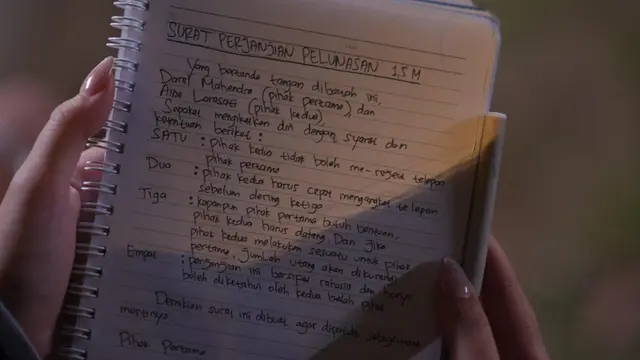 SURAT PERJANJIAN PELUNASAN 1,5 M
Yang bertanda tangan dibawah ini,
Darel Mahendra (pihak pertama), dan
Aina Larasati (pihak kedua),
Sepakat mengikatkan diri dengan syarat dan
ketentuan berikut :
SATU : pihak kedua tidak boleh me-reject telepon
pihak pertama
Dua : pihak kedua harus cepat mengangkat telepon
sebelum dering ketiga
Tiga : kapanpun pihak pertama butuh bantuan,
pihak kedua harus datang. Dan jika
pihak kedua melakukan sesuatu untuk pihak
pertama, jumlah utang akan dikurangi
Empat : perjanjian ini bersifat rahasia dan hanya
boleh diketahui oleh kedua belah pihak
Demikian surat ini dibuat agar dipatuhi sebagaimana
mestinya
Pihak Pertama